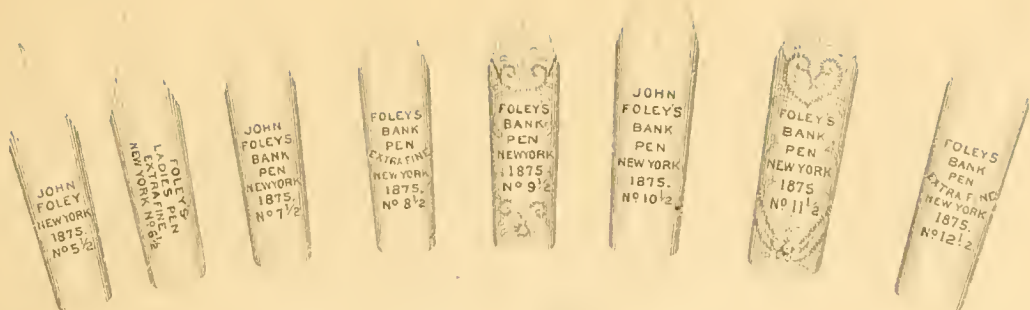 JOHN
FOLEY
NEW YORK
1875.
Nº 5½
FOLEY'S
LADIES PEN
EXTRA FINE
NEW YORK Nº 6½
JOHN
FOLEYS
BANK
PEN
NEW YORK
1875.
Nº 7½
FOLEYS
BANK
PEN
EXTRA FINE
NEW YORK
1875.
Nº 8½
FOLEY'S
BANK
PEN
NEW YORK
1875
Nº 9½
JOHN
FOLEY'S
BANK
PEN
NEW YORK
1875.
Nº 10½
FOLEY'S
BANK
PEN
NEW YORK
1875
Nº 11½
FOLEYS
BANK
PEN
EXTRA FINE
NEW YORK
1875.
Nº 12½